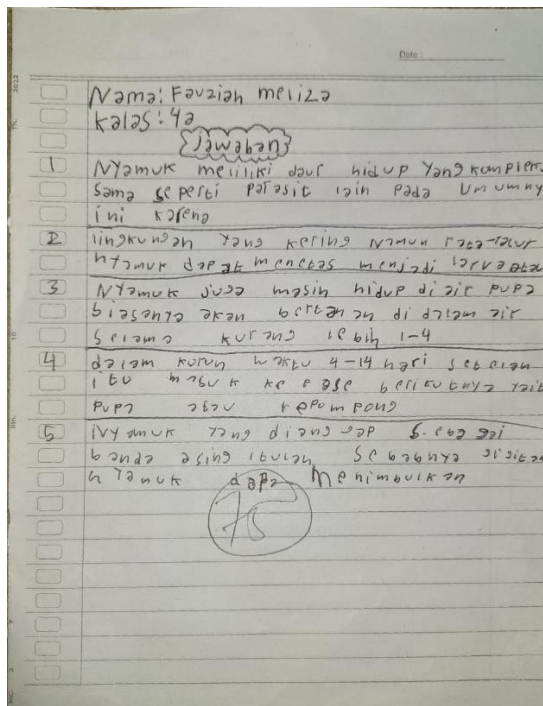 Date :
Nama: Fauziah meliza
kalas: 4a
Jawaban
1 Nyamuk meliliki daur hidup yang kompleks
sama seperti parasit lain pada Umumny
ini karena
2 lingkungan yang kering Namun rata-ratur
nyamuk dapat menetas menjadi larva atau
3 Nyamuk juga masih hidup di air pupa
biasanya akan bertahan di dalam air
selama kurang lebih 1-4
4 dalam kurun waktu 4-14 hari setelah
itu masuk ke fase berikutnya yait
pupa atau kepompong
5 Nyamuk yang dianggap sebagai
banda asing itulah sebabnya gigitan
nyamuk dapa Menimbulkan
75